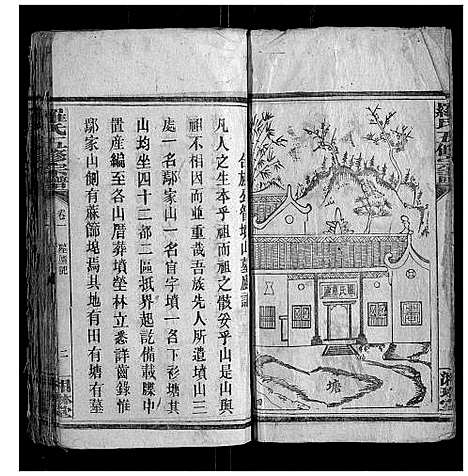 羅氏五修宗譜
塘
合族公管墳山墓廬記
凡人之生本乎祖而祖之骸妥乎山是山與
祖不相因而並重哉吾族先人所遺墳山三
處一名鄢家山一名官字墳一名下彩塘其
山均坐四十二都二區抵界起訖備載牒中
置産編至各山厝葬墳塋林立悉詳齒錄惟
鄢家山側有蔴篩塅焉其地有田有塘有墓
羅氏五修宗譜
卷一
墓廬記
二